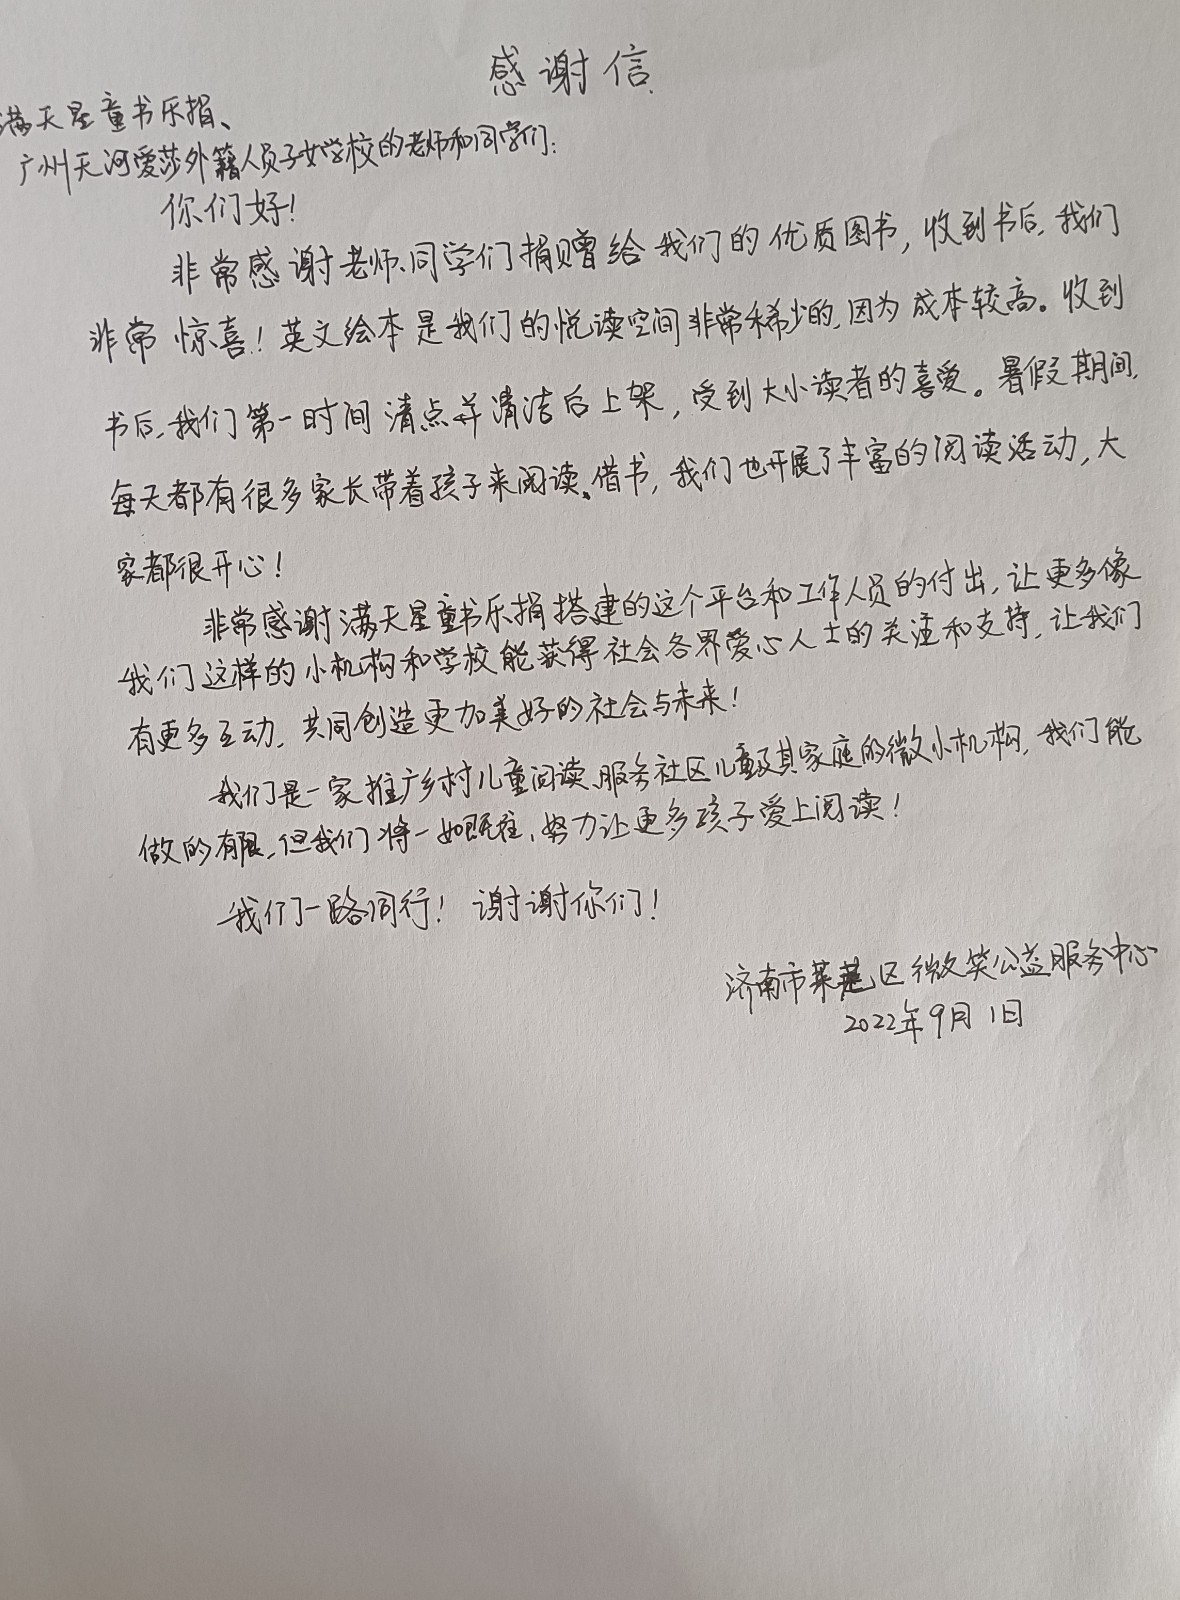 感谢信
满天星童书乐捐、
广州天河爱莎外籍人员子女学校的老师和同学们:
你们好!
非常感谢老师、同学们捐赠给我们的优质图书,收到书后,我们
非常惊喜!英文绘本是我们的悦读空间非常稀少的,因为成本较高。收到
书后,我们第一时间清点并清洁后上架,受到大小读者的喜爱。暑假期间,
每天都有很多家长带着孩子来阅读、借书,我们也开展了丰富的阅读活动,大
家都很开心!
非常感谢满天星童书乐捐搭建的这个平台和工作人员的付出,让更多像
我们这样的小机构和学校能获得社会各界爱心人士的关注和支持,让我们
有更多互动,共同创造更加美好的社会与未来!
我们是一家推广乡村儿童阅读、服务社区儿童及其家庭的微小机构,我们能
做的有限,但我们将一如既往,努力让更多孩子爱上阅读!
我们一路同行!谢谢你们!
济南市莱芜区微笑公益服务中心
2022年9月1日